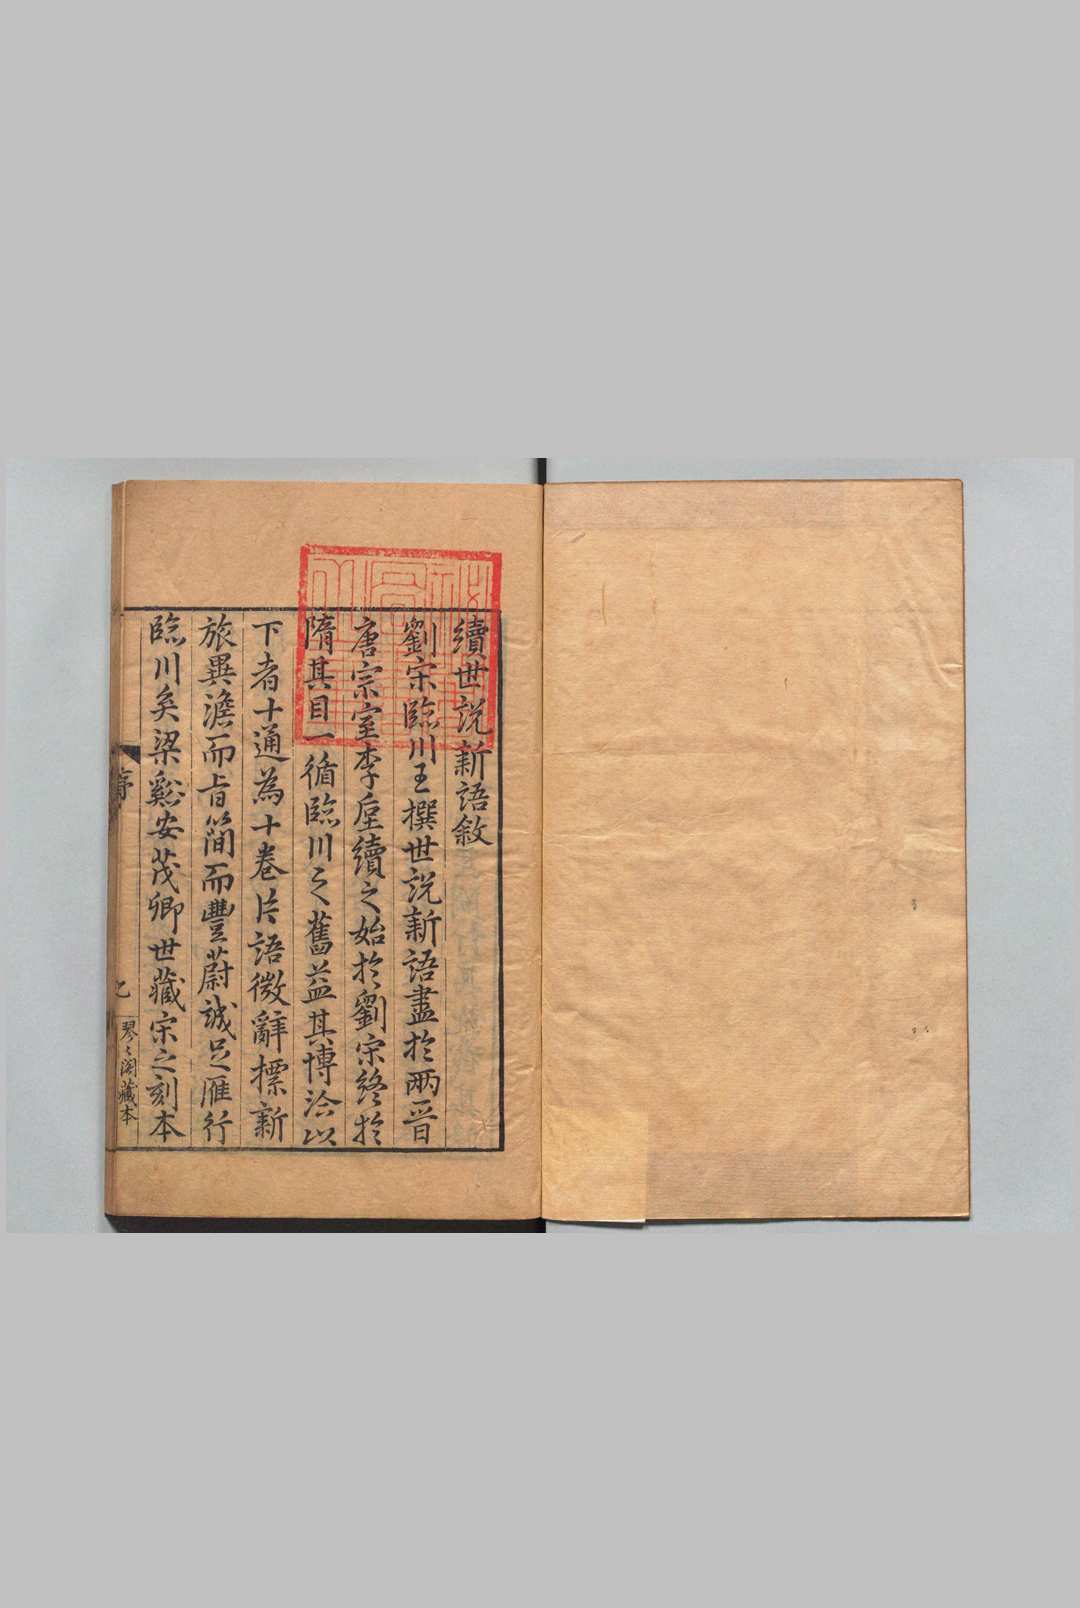 續世說新語敘
劉宋臨川王撰世說新語盡於兩晉
唐宗室李垕續之始於劉宋終於
隋其目一循臨川之舊益其博洽以
下者十通為十卷片語微辭摽新
旅異澹而旨簡而豐蔚誠足雁行
臨川矣梁谿安茂卿世藏宋之刻本
序
琴〻閣藏本